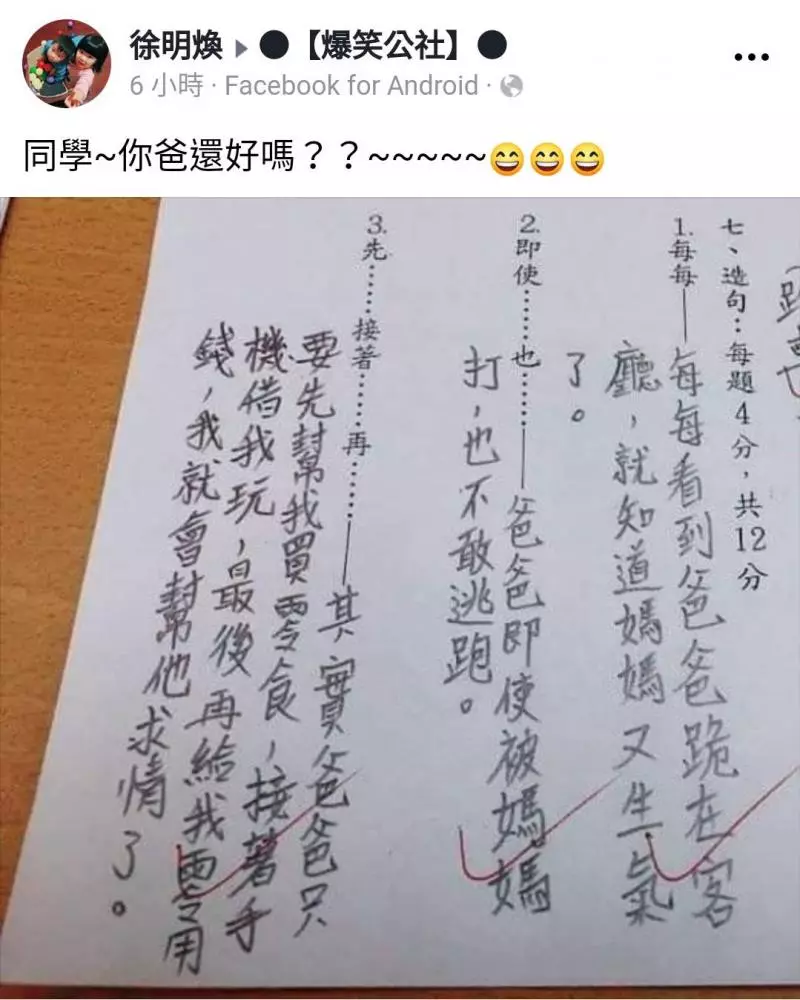 徐明煥 ▸ ●【爆笑公社】●
6 小時 · Facebook for Android ·
同學~你爸還好嗎？？~~~~~😄😄😄
七、造句：每題4分，共12分
1.每每——每每看到爸爸跪在客
廳，就知道媽媽又生氣
了。
2.即使……也……——爸爸即使被媽媽
打，也不敢逃跑。
3.先……接著……再……——其實爸爸只
要先幫我買零食，接著手
機借我玩，最後再給我零用
錢，我就會幫他求情了。